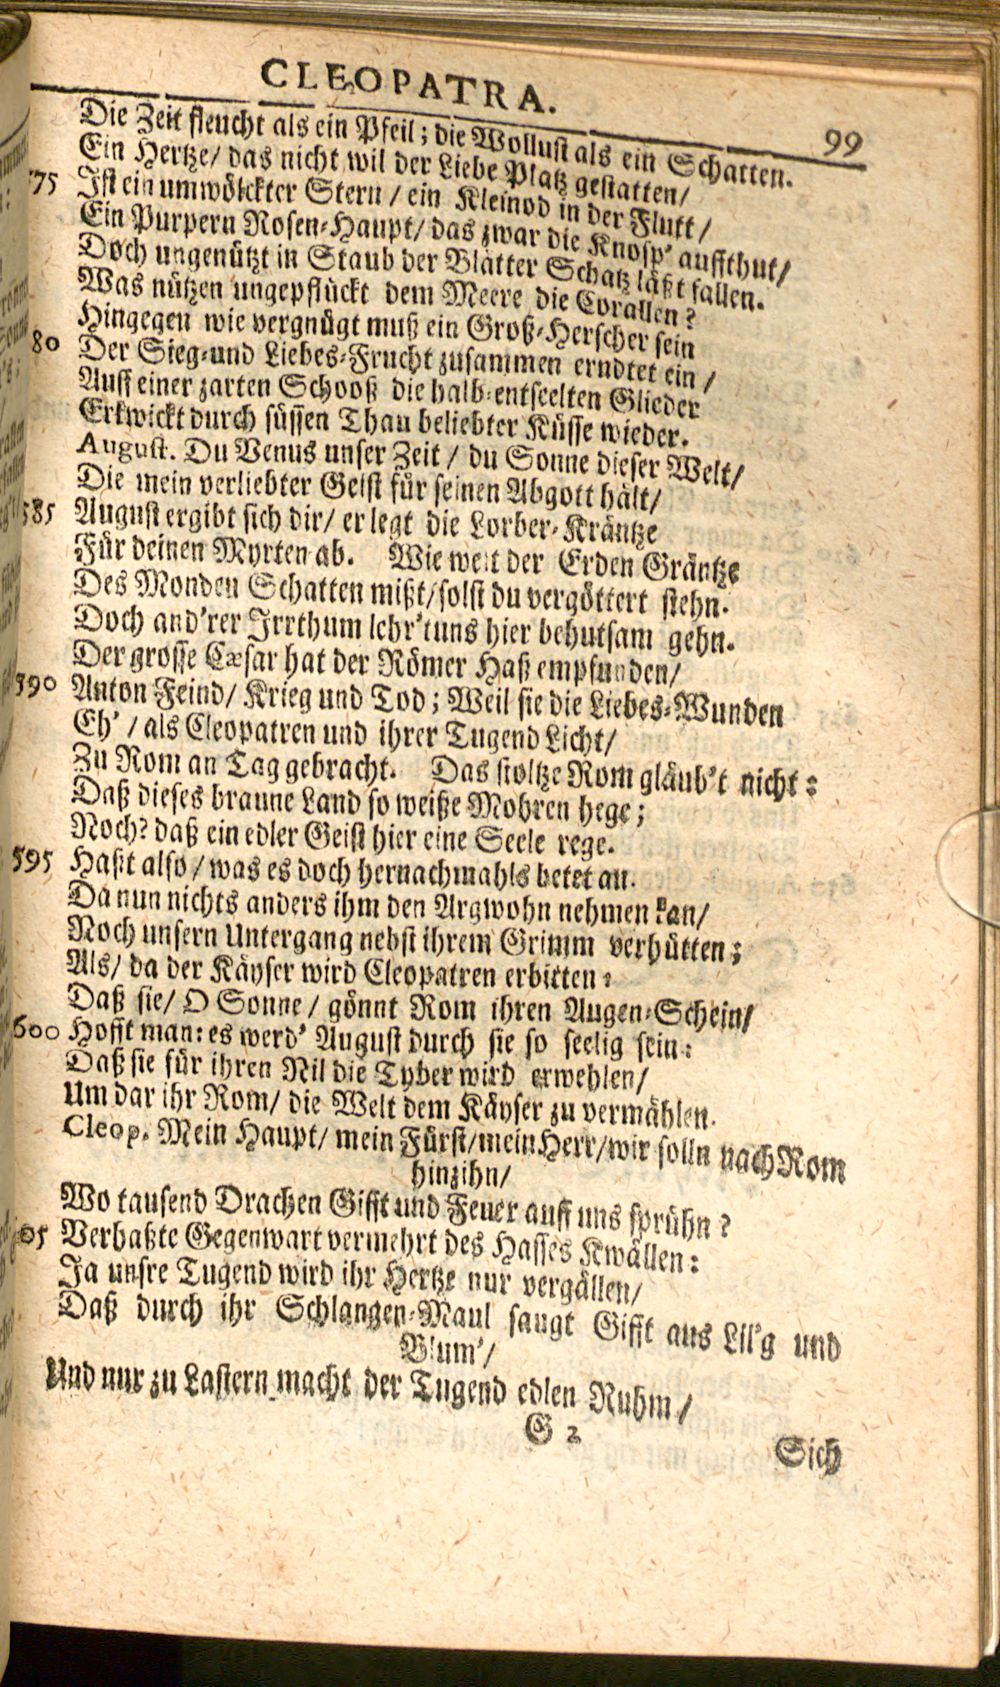 CLEOPATRA.
99
Die Zeit fleucht als ein Pfeil; die Wollust als ein Schatten.
Ein Hertze/ das nicht wil der Liebe Platz gestatten/
575 Ist ein umwölckter Stern / ein Kleinod in der Flutt /
Ein Purpern Rosen-Haupt/ das zwar die Knosp' auffthut/
Doch ungenützt in Staub der Blätter Schatz läßt fallen.
Was nützen ungepflückt dem Meere die Corallen?
Hingegen wie vergnügt muß ein Groß-Herscher sein
80 Der Sieg-und Liebes-Frucht zusammen erndtet ein /
Auff einer zarten Schooß die halb-entseelten Glieder
Erkwickt durch süssen Thau beliebter Küsse wieder.
August. Du Venus unser Zeit / du Sonne dieser Welt/
Die mein verliebter Geist für seinen Abgott hält/
585 August ergibt sich dir/ er legt die Lorber-Kräntze
Für deinen Myrten ab. Wie weit der Erden Gräntze
Des Monden Schatten mißt/solst du vergöttert stehn.
Doch and'rer Irrthum lehr't uns hier behutsam gehn.
Der grosse Cæsar hat der Römer Haß empfunden/
590 Anton Feind/ Krieg und Tod; Weil sie die Liebes-Wunden
Eh' / als Cleopatren und ihrer Tugend Licht/
Zu Rom an Tag gebracht. Das stoltze Rom gläub't nicht:
Daß dieses braune Land so weiße Mohren hege;
Noch? daß ein edler Geist hier eine Seele rege.
595 Hasst also / was es doch hernachmahls betet an.
Da nun nichts anders ihm den Argwohn nehmen kan/
Noch unsern Untergang nebst ihrem Grimm verhütten;
Als/ da der Käyser wird Cleopatren erbitten:
Daß sie/ O Sonne / gönnt Rom ihren Augen-Schein/
600 Hofft man: es werd' August durch sie so seelig sein:
Daß sie für ihren Nil die Tyber wird erwehlen/
Um dar ihr Rom/ die Welt dem Käyser zu vermählen.
Cleop. Mein Haupt/ mein Fürst/mein Herr/wir solln nach Rom
hinzihn/
Wo tausend Drachen Gifft und Feuer auff uns sprühn?
05 Verhaßte Gegenwart vermehrt des Hasses Kwällen:
Ja unsre Tugend wird ihr Hertze nur vergällen/
Daß durch ihr Schlangen-Maul saugt Gifft aus Lil'g und
Blum'/
Und nur zu Lastern macht der Tugend edlen Ruhm /
G 2
Sich